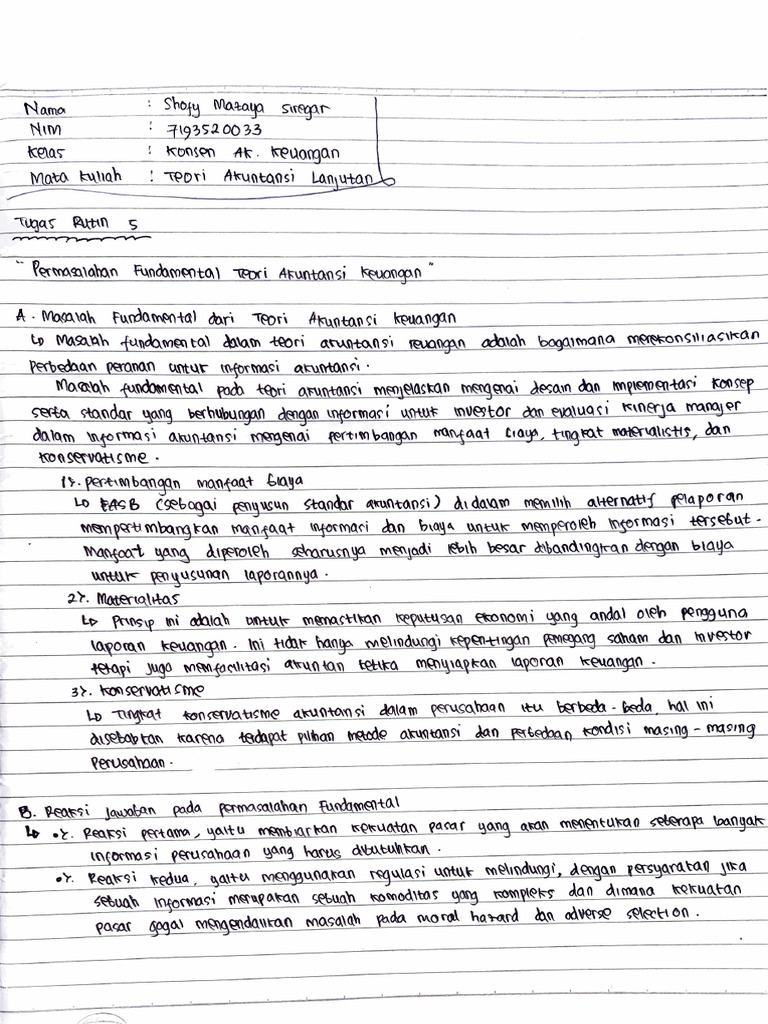 Nama : Shofy Mataya Siregar
Nim : 7193520033
Kelas : Konsen Ak. Keuangan
Mata Kuliah : Teori Akuntansi Lanjutan
Tugas Rutin 5
"Permasalahan Fundamental Teori Akuntansi Keuangan"
A. Masalah Fundamental dari Teori Akuntansi Keuangan
↳ Masalah fundamental dalam teori akuntansi keuangan adalah bagaimana merekonsiliasikan
perbedaan peranan untuk informasi akuntansi.
Masalah fundamental pada teori akuntansi menjelaskan mengenai desain dan implementasi konsep
serta standar yang berhubungan dengan informasi untuk investor dan evaluasi kinerja manajer
dalam informasi akuntansi mengenai pertimbangan manfaat biaya, tingkat materialistis, dan
konservatisme.
1). Pertimbangan manfaat biaya
↳ FASB (sebagai penyusun standar akuntansi) didalam memilih alternatif pelaporan
mempertimbangkan manfaat informasi dan biaya untuk memperoleh informasi tersebut.
Manfaat yang diperoleh seharusnya menjadi lebih besar dibandingkan dengan biaya
untuk penyusunan laporannya.
2). Materialitas
↳ Prinsip ini adalah untuk memastikan keputusan ekonomi yang andal oleh pengguna
laporan keuangan. Ini tidak hanya melindungi kepentingan pemegang saham dan investor
tetapi juga memfasilitasi akuntan ketika menyiapkan laporan keuangan.
3). Konservatisme
↳ Tingkat konservatisme akuntansi dalam perusahaan itu berbeda-beda, hal ini
disebabkan karena terdapat pilihan metode akuntansi dan perbedaan kondisi masing-masing
perusahaan.
B. Reaksi jawaban pada permasalahan Fundamental
↳ •). Reaksi pertama, yaitu membiarkan kekuatan pasar yang akan menentukan seberapa banyak
informasi perusahaan yang harus dibutuhkan.
•). Reaksi kedua, yaitu menggunakan regulasi untuk melindungi, dengan persyaratan jika
sebuah informasi merupakan sebuah komoditas yang kompleks dan dimana kekuatan
pasar gagal mengendalikan masalah pada moral hazard dan adverse selection.